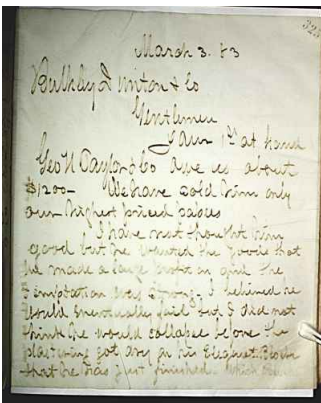 325
March 3. 83
Bulkley Dunton & Co
Gentlemen
Your 1st at hand
Geo H Taylor & Co owe us about
$1200— We have sold him only
our highest priced papers
I have not thought him
good but he wanted the goods that
we made a large profit on and the
temptation was strong. I believed he
would eventually fail but I did not
think he would collapse before the
plastering got dry in his Elegant
that he has just finished. which